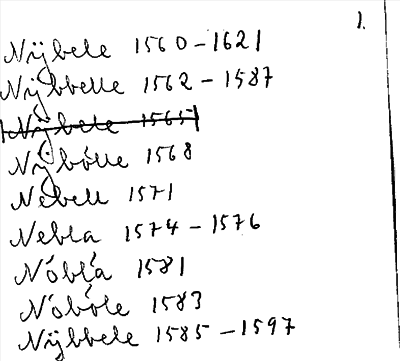 1.
Nÿbele 1560-1621
Nÿbbelle 1562 - 1587
Nÿbele 1565
Nÿbólle 1568
Nebell 1571
Nebla 1574 - 1576
Nóbla 1581
Nóbóle 1583
Nÿbbele 1585 - 1597